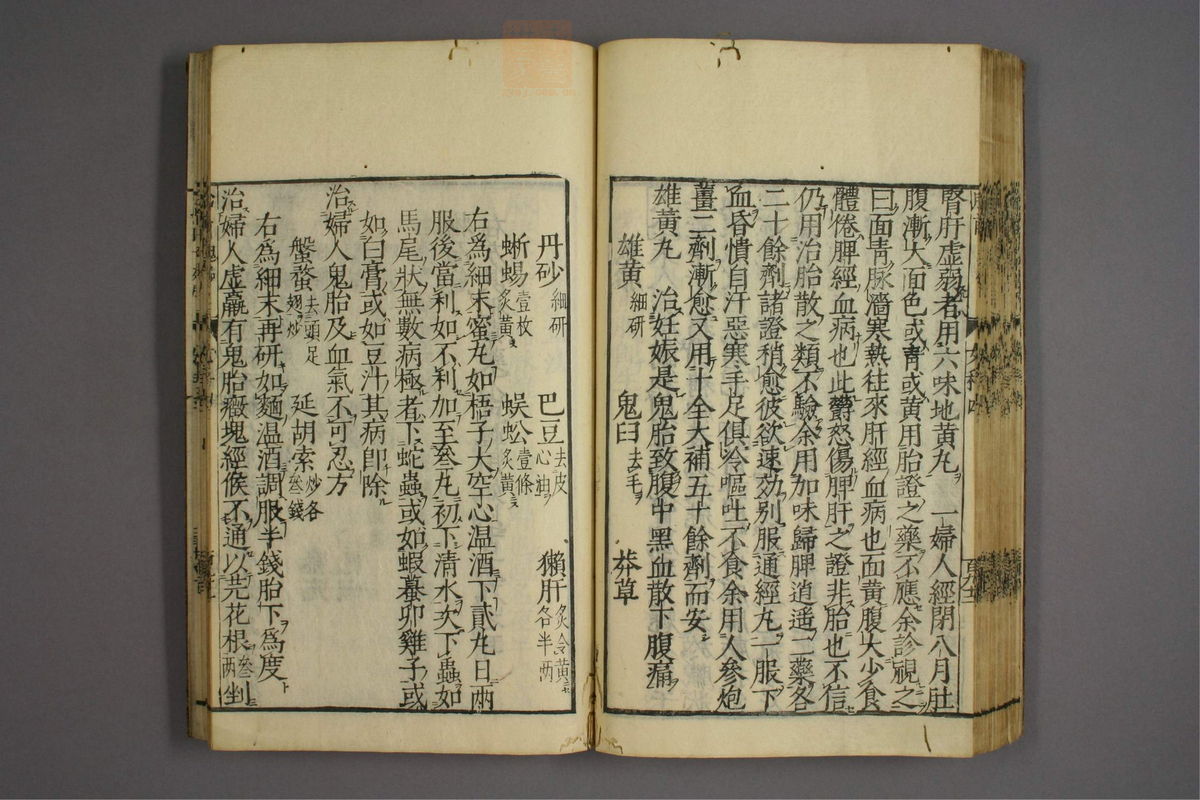 腎肝虛弱者用六味地黃丸　一婦人經閉八月肚
腹漸大面色或靑或黃用胎證之藥不應余診視之
曰面靑脉濇寒熱往來肝經血病也面黃腹大少食
體倦脾經血病也此鬱怒傷脾肝之證非胎也不信
仍用治胎散之類不驗余用加味歸脾逍遥二藥各
二十餘劑諸證稍愈彼欲速効別服通經丸一服下
血昏憒自汗惡寒手足俱冷嘔吐不食余用人參炮
薑二劑漸愈又用十全大補五十餘劑而安
雄黃丸　治妊娠是鬼胎致腹中黑血散下腹痛
雄黃細研　鬼臼去毛　莽草
丹砂細研　巴豆去皮心油　獺肝炙令黃各半兩
蜥蜴壹枚炙黃　蜈蚣壹條炙黃
右爲細末蜜丸如梧子大空心温酒下貳丸日兩
服後當利如不利加至叄丸初下清水次下蟲如
馬尾狀無數病極者下蛇蟲或如蝦蟇卵雞子或
如白膏或如豆汁其病卽除
治婦人鬼胎及血氣不可忍方
盤蝥去頭足翅炒　延胡索炒各叄錢
右爲細末再研如麵温酒調服半錢胎下爲度
治婦人虛羸有鬼胎癥塊經候不通以芫花根叄兩剉